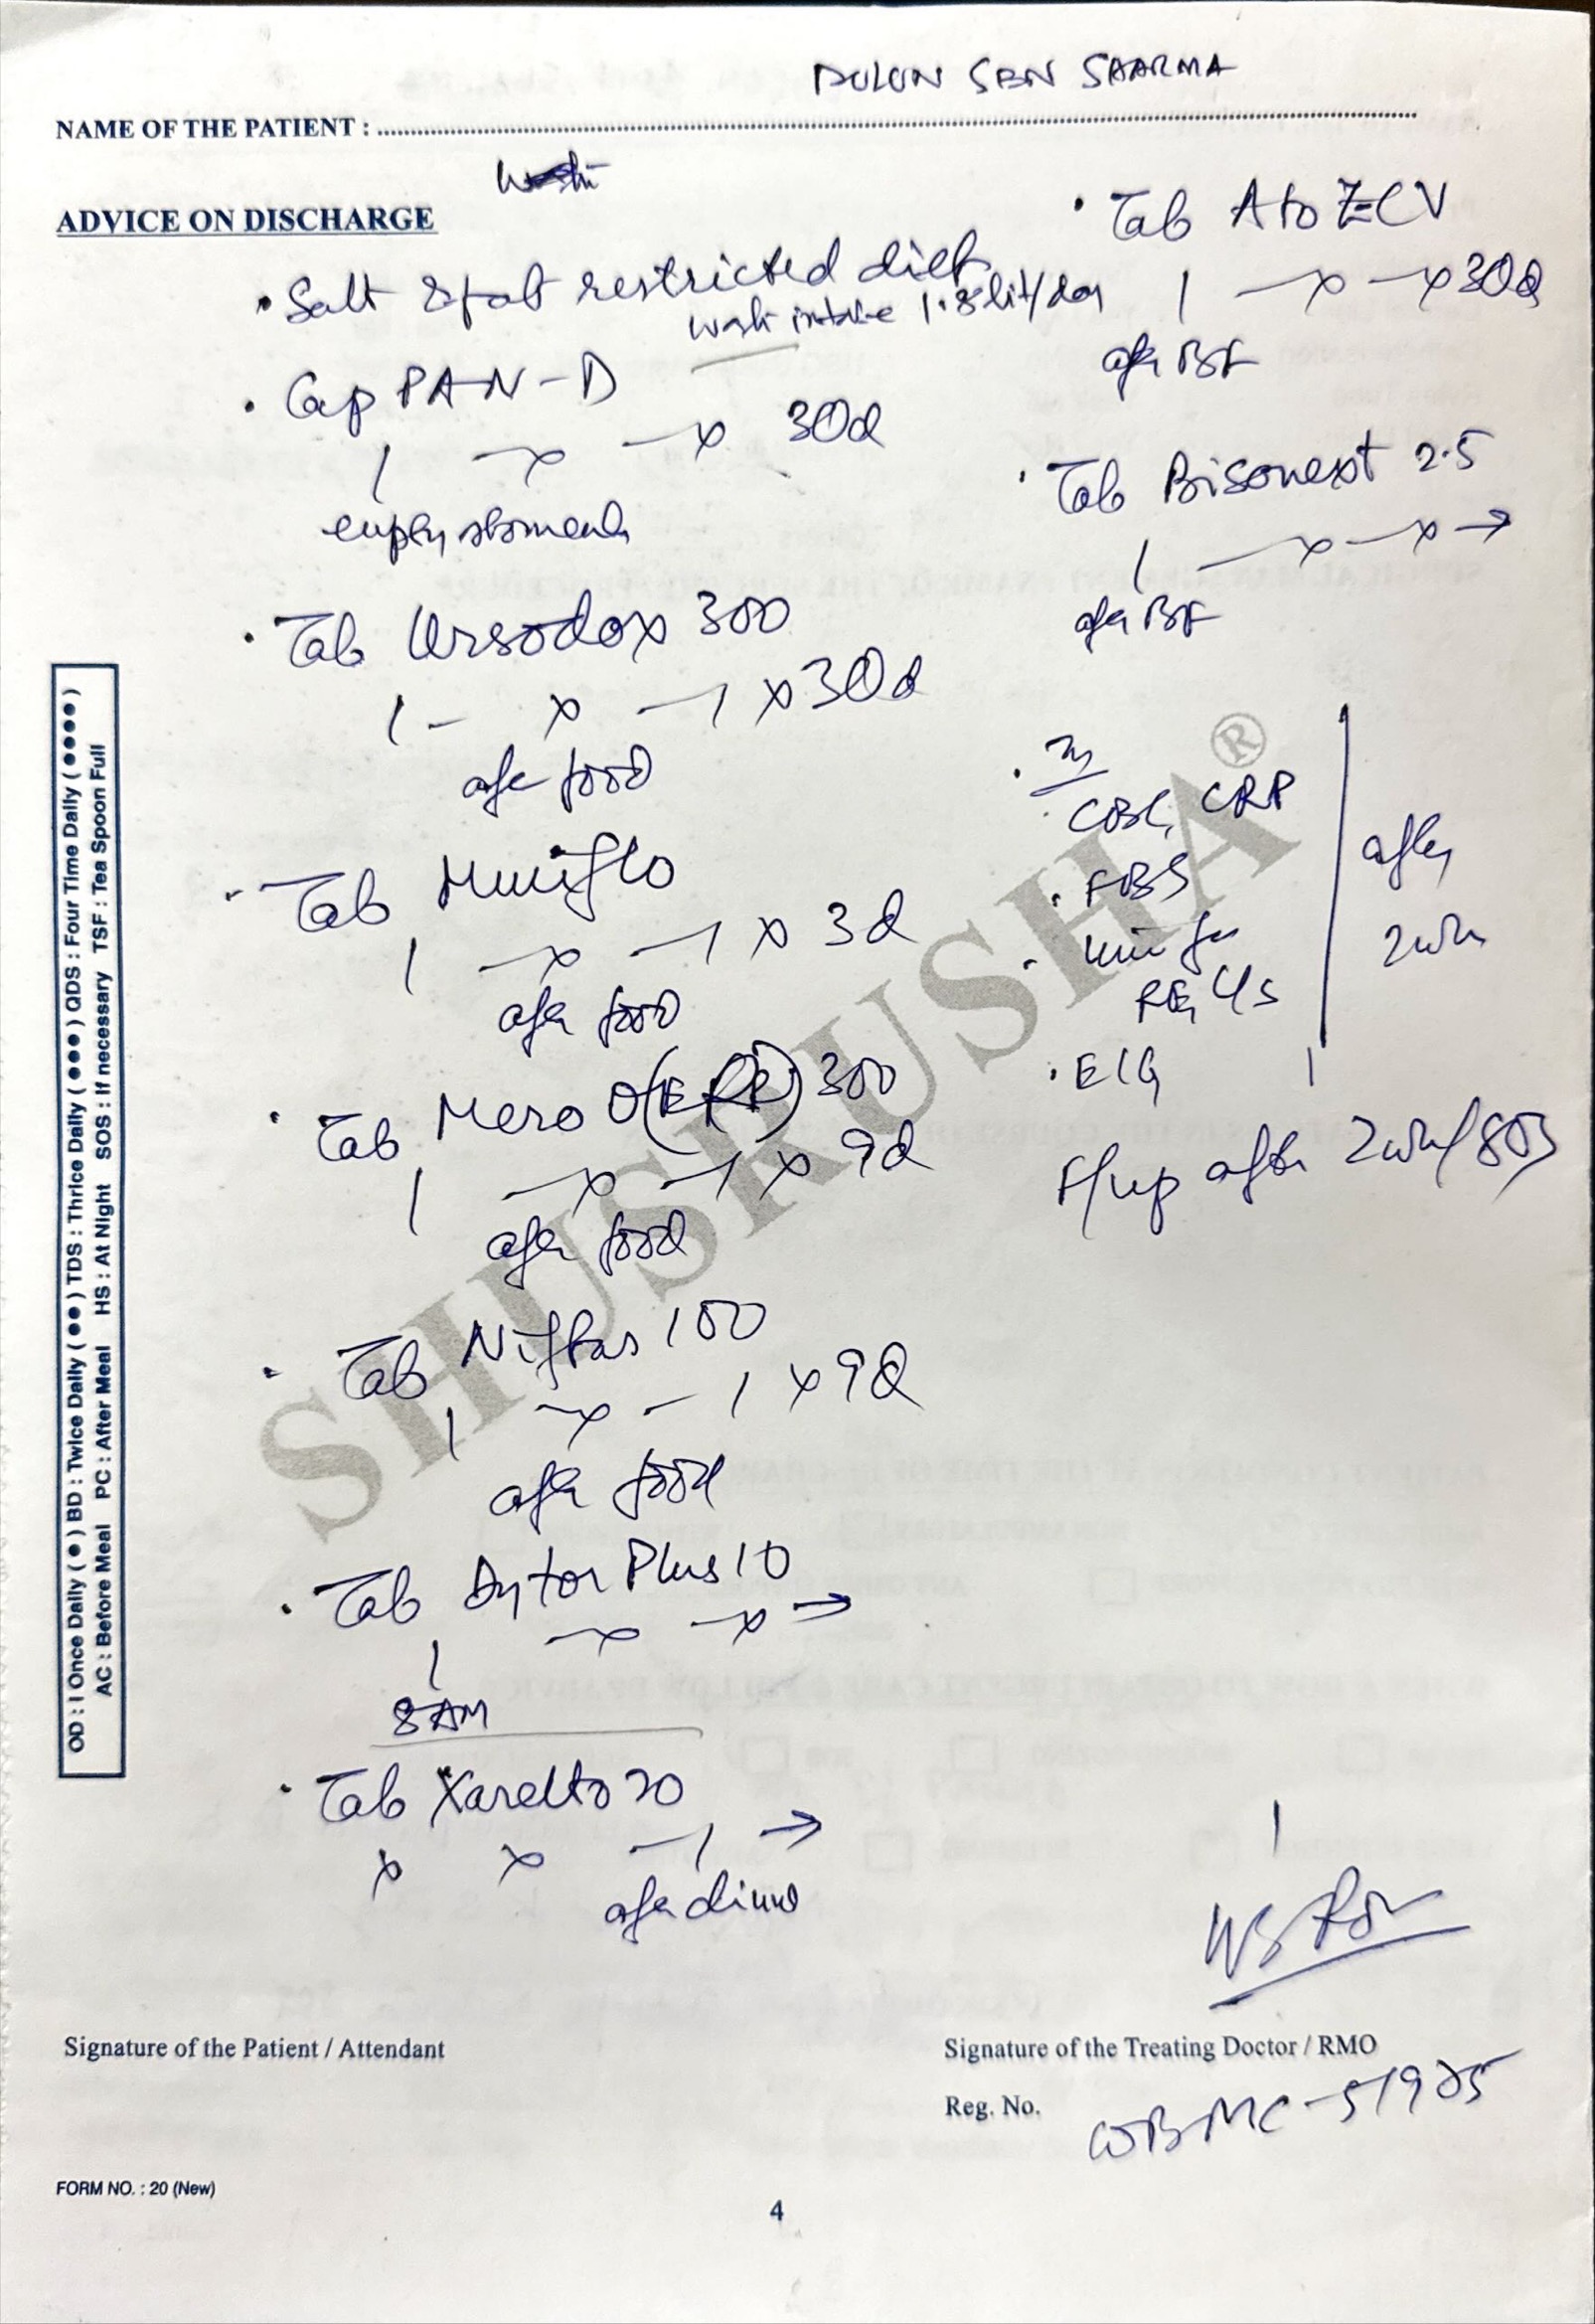 DULUN SEN SHARMA
NAME OF THE PATIENT :
ADVICE ON DISCHARGE
• Salt & fat restricted diet
intake 1.8 lit/day
• Cap PAN-D
1 — x — x 30d
empty stomach
• Tab Ursodox 300
1 — x — 1 x 30d
after food
• Tab
1 — x — 1 x 3d
after food
• Tab Mero O (ER) 300
1 — x — 1 x 9d
after food
• Tab Niftas 100
1 — x — 1 x 9d
after food
• Tab Dytor Plus 10
1 — x — x →
8 AM
• Tab Xarelto 20
x x — 1 →
after dinner
• Tab A to Z-CV
1 — x — x 30d
after BF
• Tab Bisonext 2.5
1 — x — x →
after BF
• CBC, CRP
• FBS
• RE, C/S
• ECG
after
2wks
F/up after 2wks/SOS
SHUSRUSHA®
OD : I Once Daily ( ● ) BD : Twice Daily ( ●● ) TDS : Thrice Daily ( ●●● ) QDS : Four Time Daily ( ●●●● )
AC : Before Meal PC : After Meal HS : At Night SOS : If necessary TSF : Tea Spoon Full
Signature of the Patient / Attendant
Signature of the Treating Doctor / RMO
Reg. No. WBMC-51925
FORM NO. : 20 (New)
4